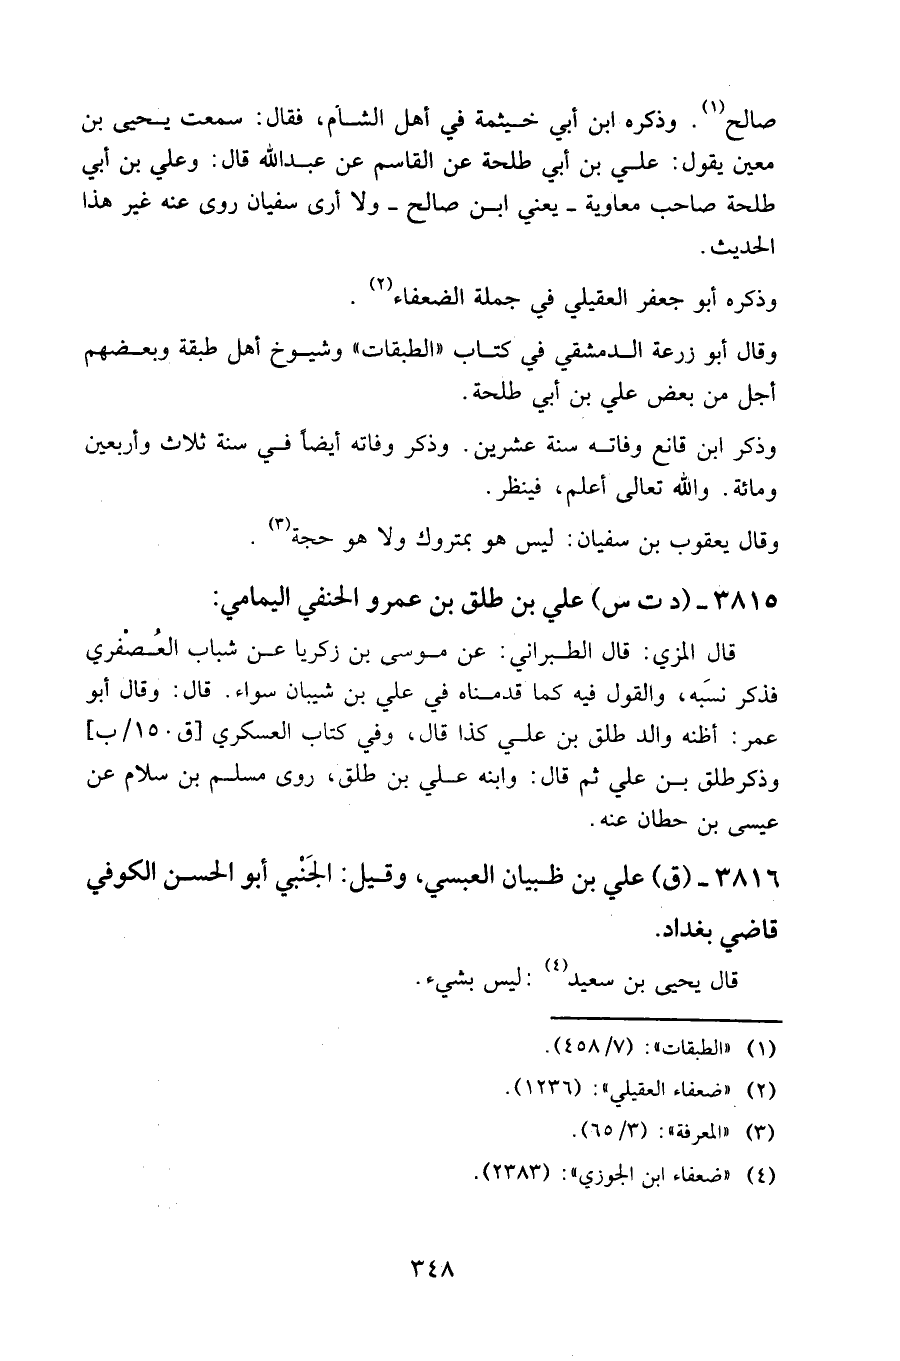 صالح(١). وذكره ابن أبي خـيثمة في أهل الشـام، فقال: سمعت يـحيى بن
معين يقول: علـي بن أبي طلحة عن القاسم عن عبـدالله قال: وعلي بن أبي
طلحة صاحب معاوية ـ يعني ابـن صالح ـ ولا أرى سفيان روى عنه غير هذا
الحديث.
وذكره أبو جعفر العقيلي في جملة الضعفاء(٢) .
وقال أبو زرعة الـدمشقي في كتـاب «الطبقات» وشيـوخ أهل طبقة وبعـضهم
أجل من بعض علي بن أبي طلحة.
وذكر ابن قانع وفاتـه سنة عشرين. وذكر وفاته أيضاً فـي سنة ثلاث وأربعين
ومائة. والله تعالى أعلم، فينظر.
وقال يعقوب بن سفيان: ليس هو بمتروك ولا هو حجة(٣) .
٣٨١٥ ـ (د ت س) علي بن طلق بن عمرو الحنفي اليمامي:
قال المزي: قال الطـبراني: عن مـوسى بن زكريا عـن شباب العُـصْفري
فذكر نسَبه، والقول فيه كما قدمـناه في علي بن شيبان سواء. قال: وقال أبو
عمر: أظنه والد طلق بن علـي كذا قال، وفي كتاب العسكري [ق ١٥٠/ب]
وذكرطلق بـن علي ثم قال: وابنه عـلي بن طلق، روى مسلـم بن سلام عن
عيسى بن حطان عنه.
٣٨١٦ ـ (ق) علي بن ظـبيان العبسي، وقـيل: الجَنْبي أبو الحسـن الكوفي
قاضي بغداد.
قال يحيى بن سعيد(٤) :ليس بشيء.
(١) «الطبقات»: (٤٥٨/٧).
(٢) «ضعفاء العقيلي»: (١٢٣٦).
(٣) «المعرفة»: (٦٥/٣).
(٤) «ضعفاء ابن الجوزي»: (٢٣٨٣).
٣٤٨